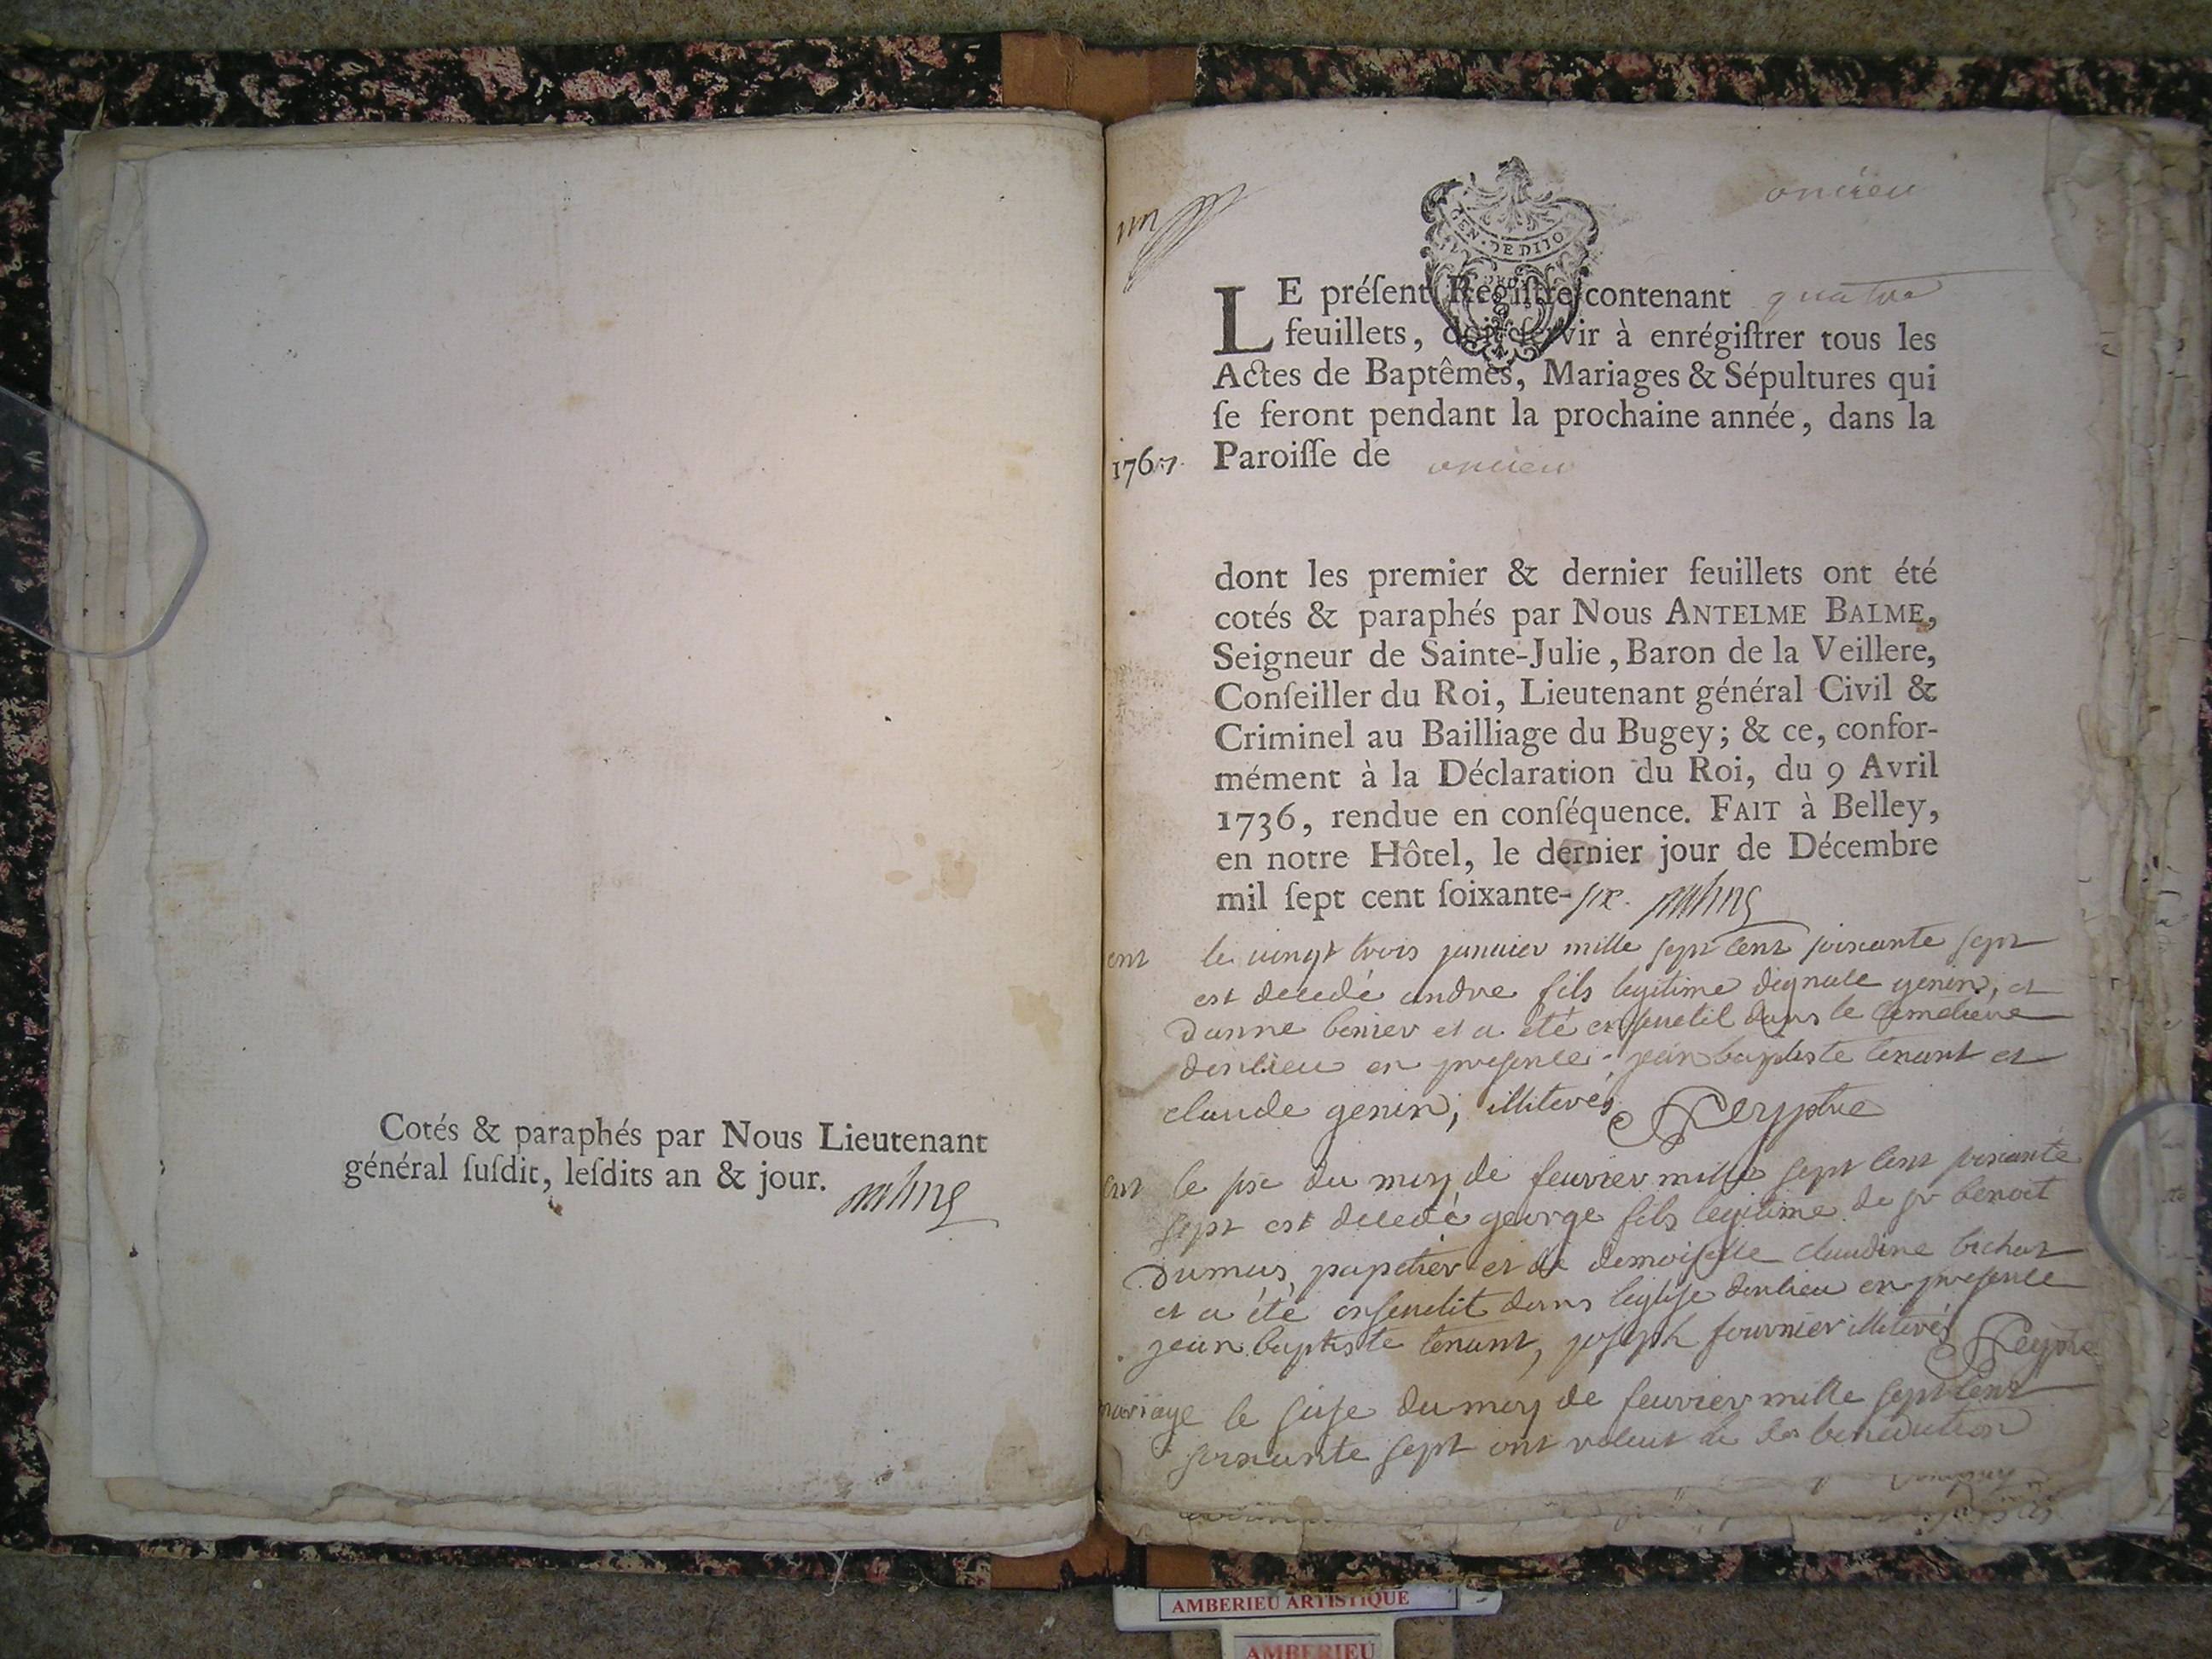 Cotés & paraphés par Nous Lieutenant
général ſuſdit, leſdits an & jour.
un
oncieu
GEN·DE DIJO
LE préſent Régiſtre contenant quatre
feuillets, doit ſervir à enrégiſtrer tous les
Actes de Baptêmes, Mariages & Sépultures qui
ſe feront pendant la prochaine année, dans la
1767. Paroiſſe de oncieu
dont les premier & dernier feuillets ont été
cotés & paraphés par Nous ANTELME BALME,
Seigneur de Sainte-Julie, Baron de la Veillere,
Conſeiller du Roi, Lieutenant général Civil &
Criminel au Bailliage du Bugey; & ce, confor-
mément à la Déclaration du Roi, du 9 Avril
1736, rendue en conſéquence. FAIT à Belley,
en notre Hôtel, le dernier jour de Décembre
mil ſept cent ſoixante-six.
ent le vingt trois janvier mille sept cent soixante sept
est decedé andre fils legitime dignace genin, et
danne et a été ensevelit dans le cimetiere
doncieu en presence jean baptiste tenant et
claude genin, illiterés
ent le six du moy de feuvrier mille sept cent soixante
sept est decedé george fils legitime de sr benoit
dumas papetier et de demoiselle claudine bichat
et a été ensevelit dans leglise doncieu en presence
jean baptiste tenant, joseph fournier illiterés
mariage le seise du moy de feuvrier mille sept cent
soixante sept ont la benediction
AMBERIEU ARTISTIQUE
AMBERIEU